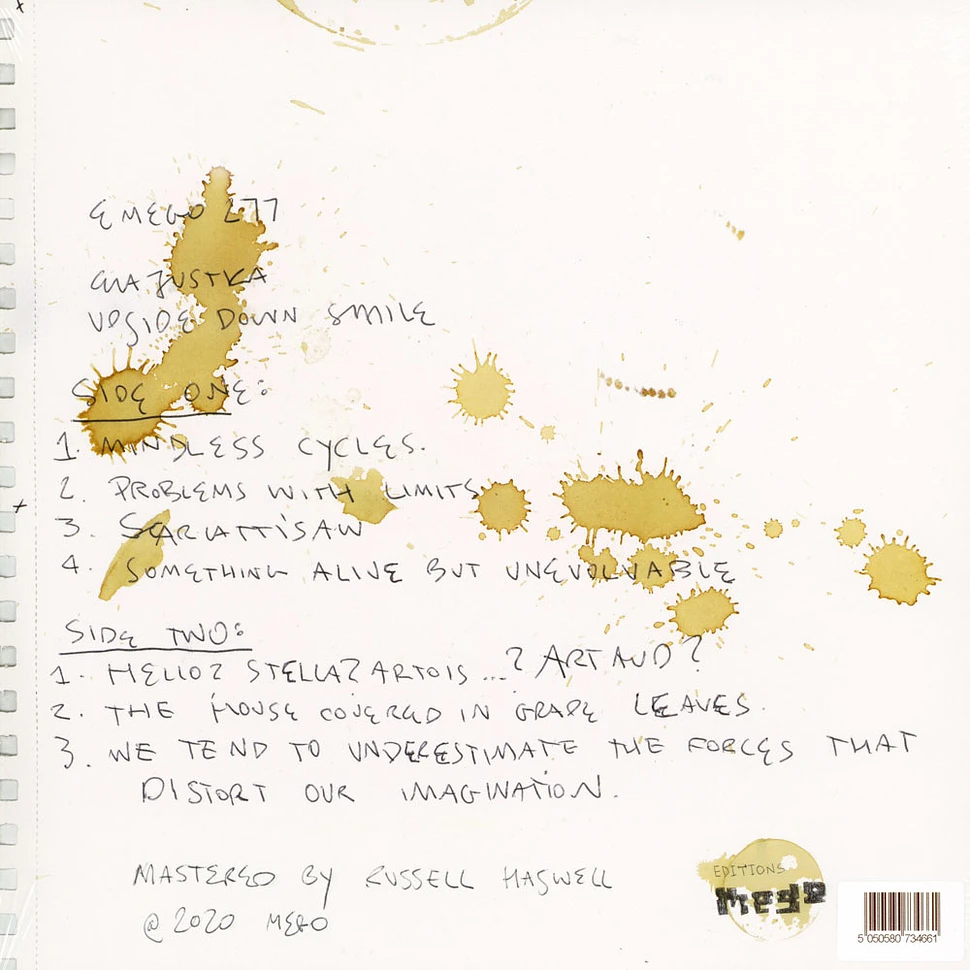 EMEGO 277
GUAJUSTKA
UPSIDE DOWN SMILE
SIDE ONE:
1. MINDLESS CYCLES.
2. PROBLEMS WITH LIMITS
3. SCARLATTI'S AW
4. SOMETHING ALIVE BUT UNEVOLVABLE
SIDE TWO:
1. HELLO? STELLA? ARTOIS ...? ARTAUD?
2. THE HOUSE COVERED IN GRAPE LEAVES.
3. WE TEND TO UNDERESTIMATE THE FORCES THAT
DISTORT OUR IMAGINATION.
MASTERED BY RUSSELL HASWELL
@ 2020 MEGO
EDITIONS
Mego
5 050580 734661